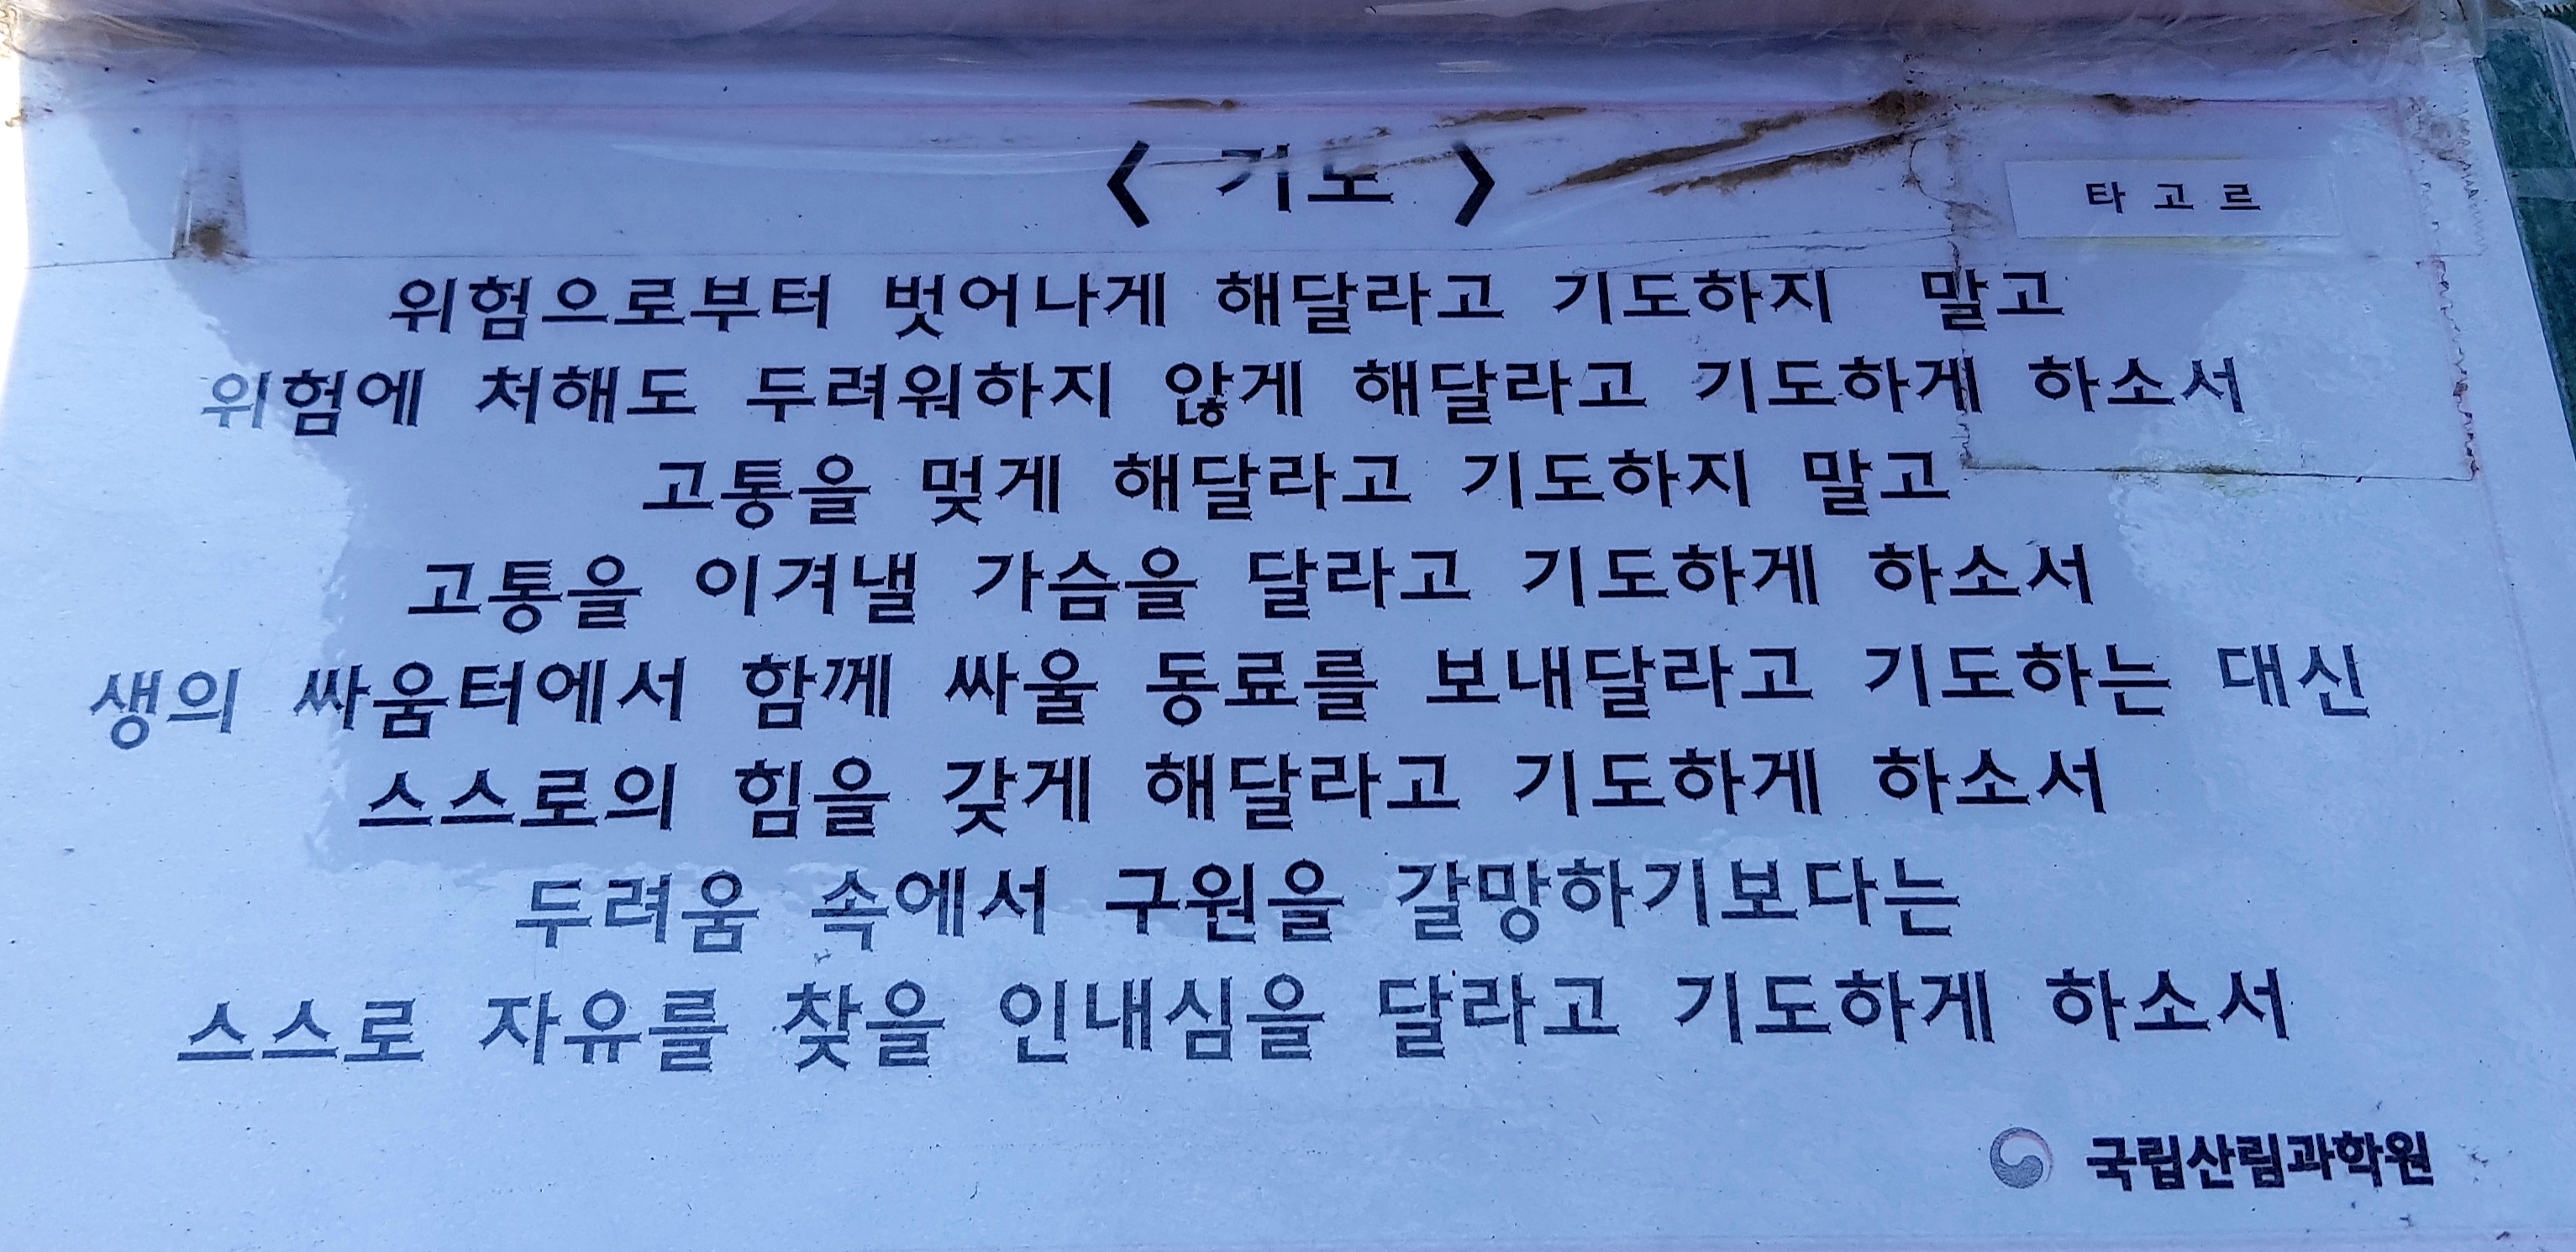 < 기도 >
타고르
위험으로부터 벗어나게 해달라고 기도하지 말고
위험에 처해도 두려워하지 않게 해달라고 기도하게 하소서
고통을 멎게 해달라고 기도하지 말고
고통을 이겨낼 가슴을 달라고 기도하게 하소서
생의 싸움터에서 함께 싸울 동료를 보내달라고 기도하는 대신
스스로의 힘을 갖게 해달라고 기도하게 하소서
두려움 속에서 구원을 갈망하기보다는
스스로 자유를 찾을 인내심을 달라고 기도하게 하소서
국립산림과학원